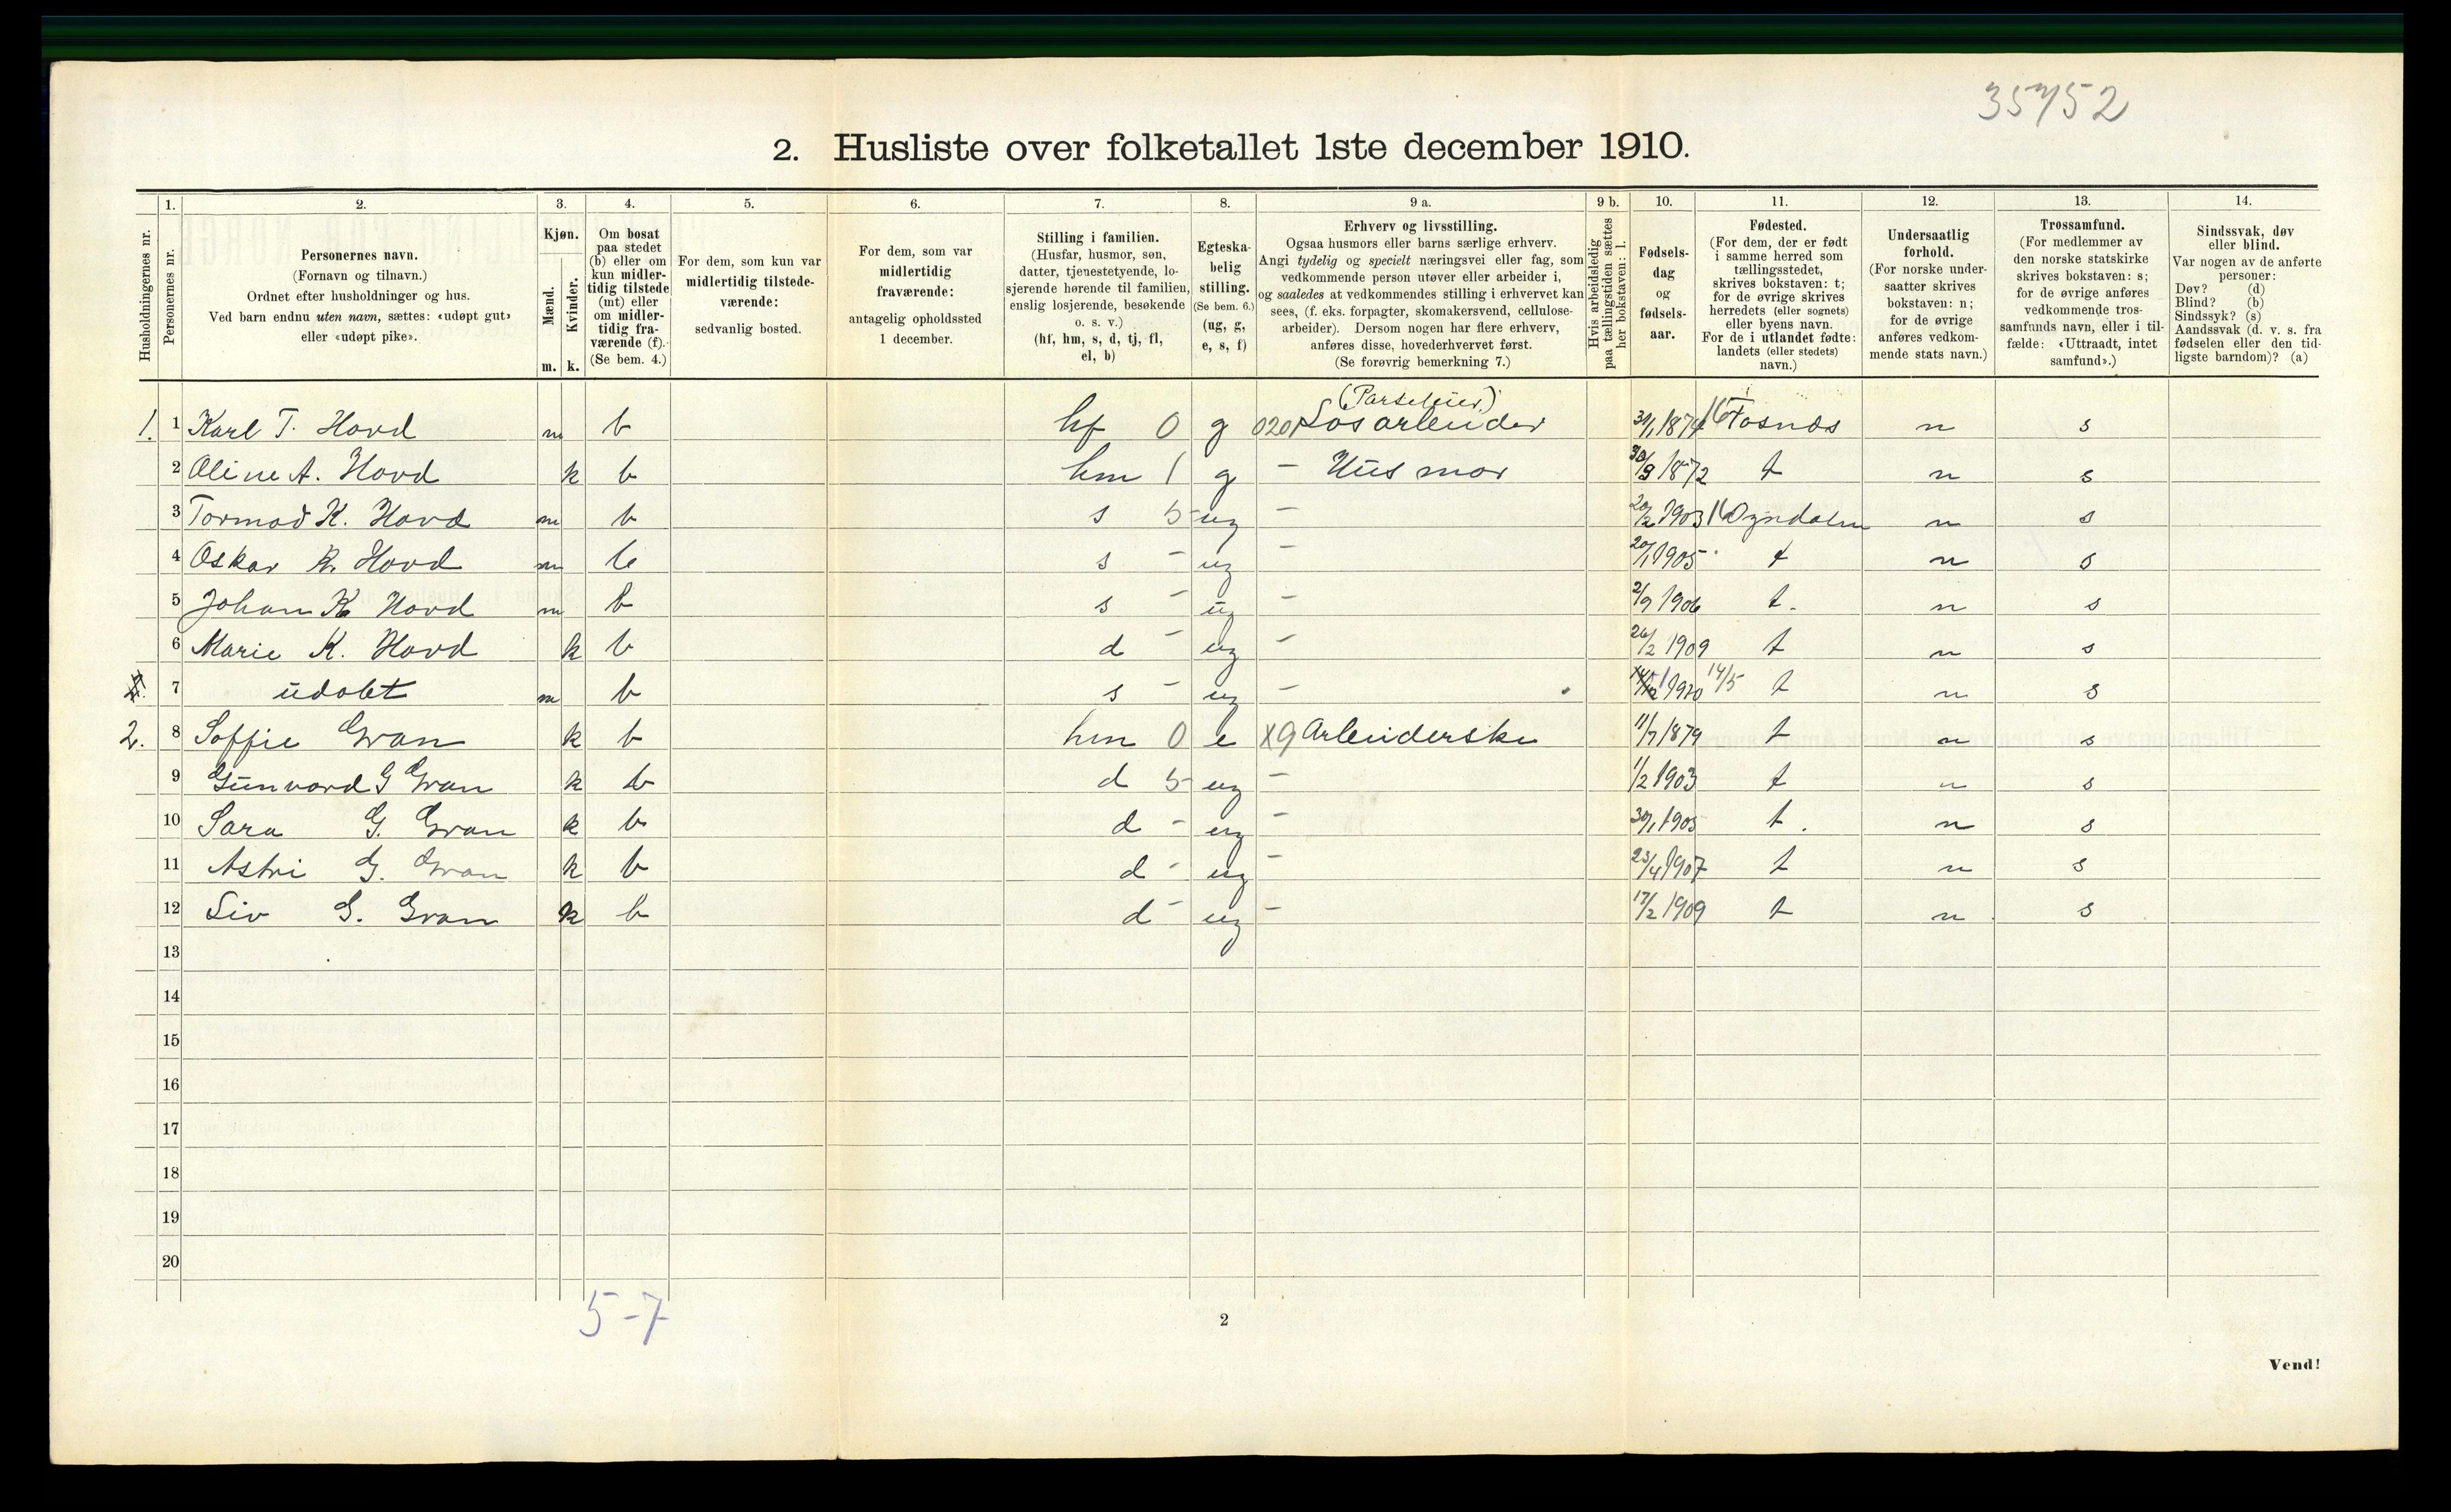 35752
2. Husliste over folketallet 1ste december 1910.
1. 2. 3. 4. 5. 6. 7. 8. 9 a. 9 b. 10. 11. 12. 13. 14.
Husholdningernes nr.
Personernes nr.
Personernes navn.
(Fornavn og tilnavn.)
Ordnet efter husholdninger og hus.
Ved barn endnu uten navn, sættes: «udøpt gut»
eller «udøpt pike».
Kjøn.
Mænd.
Kvinder.
m. k.
Om bosat
paa stedet
(b) eller om
kun midler-
tidig tilstede
(mt) eller
om midler-
tidig fra-
værende (f).
(Se bem. 4.)
For dem, som kun var
midlertidig tilstede-
værende:
sedvanlig bosted.
For dem, som var
midlertidig
fraværende:
antagelig opholdssted
1 december.
Stilling i familien.
(Husfar, husmor, søn,
datter, tjenestetyende, lo-
sjerende hørende til familien,
enslig losjerende, besøkende
o. s. v.)
(hf, hm, s, d, tj, fl,
el, b)
Egteska-
belig
stilling.
(Se bem. 6.)
(ug, g,
e, s, f)
Erhverv og livsstilling.
Ogsaa husmors eller barns særlige erhverv.
Angi tydelig og specielt næringsvei eller fag, som
vedkommende person utøver eller arbeider i,
og saaledes at vedkommendes stilling i erhvervet kan
sees, (f. eks. forpagter, skomakersvend, cellulose-
arbeider). Dersom nogen har flere erhverv,
anføres disse, hovederhvervet først.
(Se forøvrig bemerkning 7.)
Hvis arbeidsledig
paa tællingstiden sættes
her bokstaven: l.
Fødsels-
dag
og
fødsels-
aar.
Fødested.
(For dem, der er født
i samme herred som
tællingsstedet,
skrives bokstaven: t;
for de øvrige skrives
herredets (eller sognets)
eller byens navn.
For de i utlandet fødte:
landets (eller stedets)
navn.)
Undersaatlig
forhold.
(For norske under-
saatter skrives
bokstaven: n;
for de øvrige
anføres vedkom-
mende stats navn.)
Trossamfund.
(For medlemmer av
den norske statskirke
skrives bokstaven: s;
for de øvrige anføres
vedkommende tros-
samfunds navn, eller i til-
fælde: «Uttraadt, intet
samfund».)
Sindssvak, døv
eller blind.
Var nogen av de anførte
personer:
Døv? (d)
Blind? (b)
Sindssyk? (s)
Aandssvak (d. v. s. fra
fødselen eller den tid-
ligste barndom)? (a)
(Parseleier)
1. 1 Karl T. Hovd m b hf 0 g 0201 Løsarbeider 31/1 1874 16 Fosnes n s
2 Oline A. Hovd k b hm 1 g - Husmor 30/9 1872 t n s
3 Tormod K. Hovd m b s 5 ug - 20/2 1903 16 Ogndalen n s
4 Oskar K. Hovd m b s - ug - 20/1 1905 t n s
5 Johan K Hovd m b s - ug - 2/9 1906 t. n s
6 Marie K. Hovd k b d - ug - 26/2 1909 t n s
7 udøbt m b s - ug - 1910 14/5 t n s
2. 8 Soffie Gran k b hm 0 e X9 Arbeiderske 11/7 1879 t n s
9 Gunvord G Gran k b d 5 ug - 1/2 1903 t n s
10 Sara G. Gran k b d - ug - 30/1 1905 t. n s
11 Astri G. Gran k b d - ug - 23/4 1907 t n s
12 Liv G. Gran k b d - ug - 17/2 1909 t n s
13
14
15
16
17
18
19
20
5-7
2
Vend!